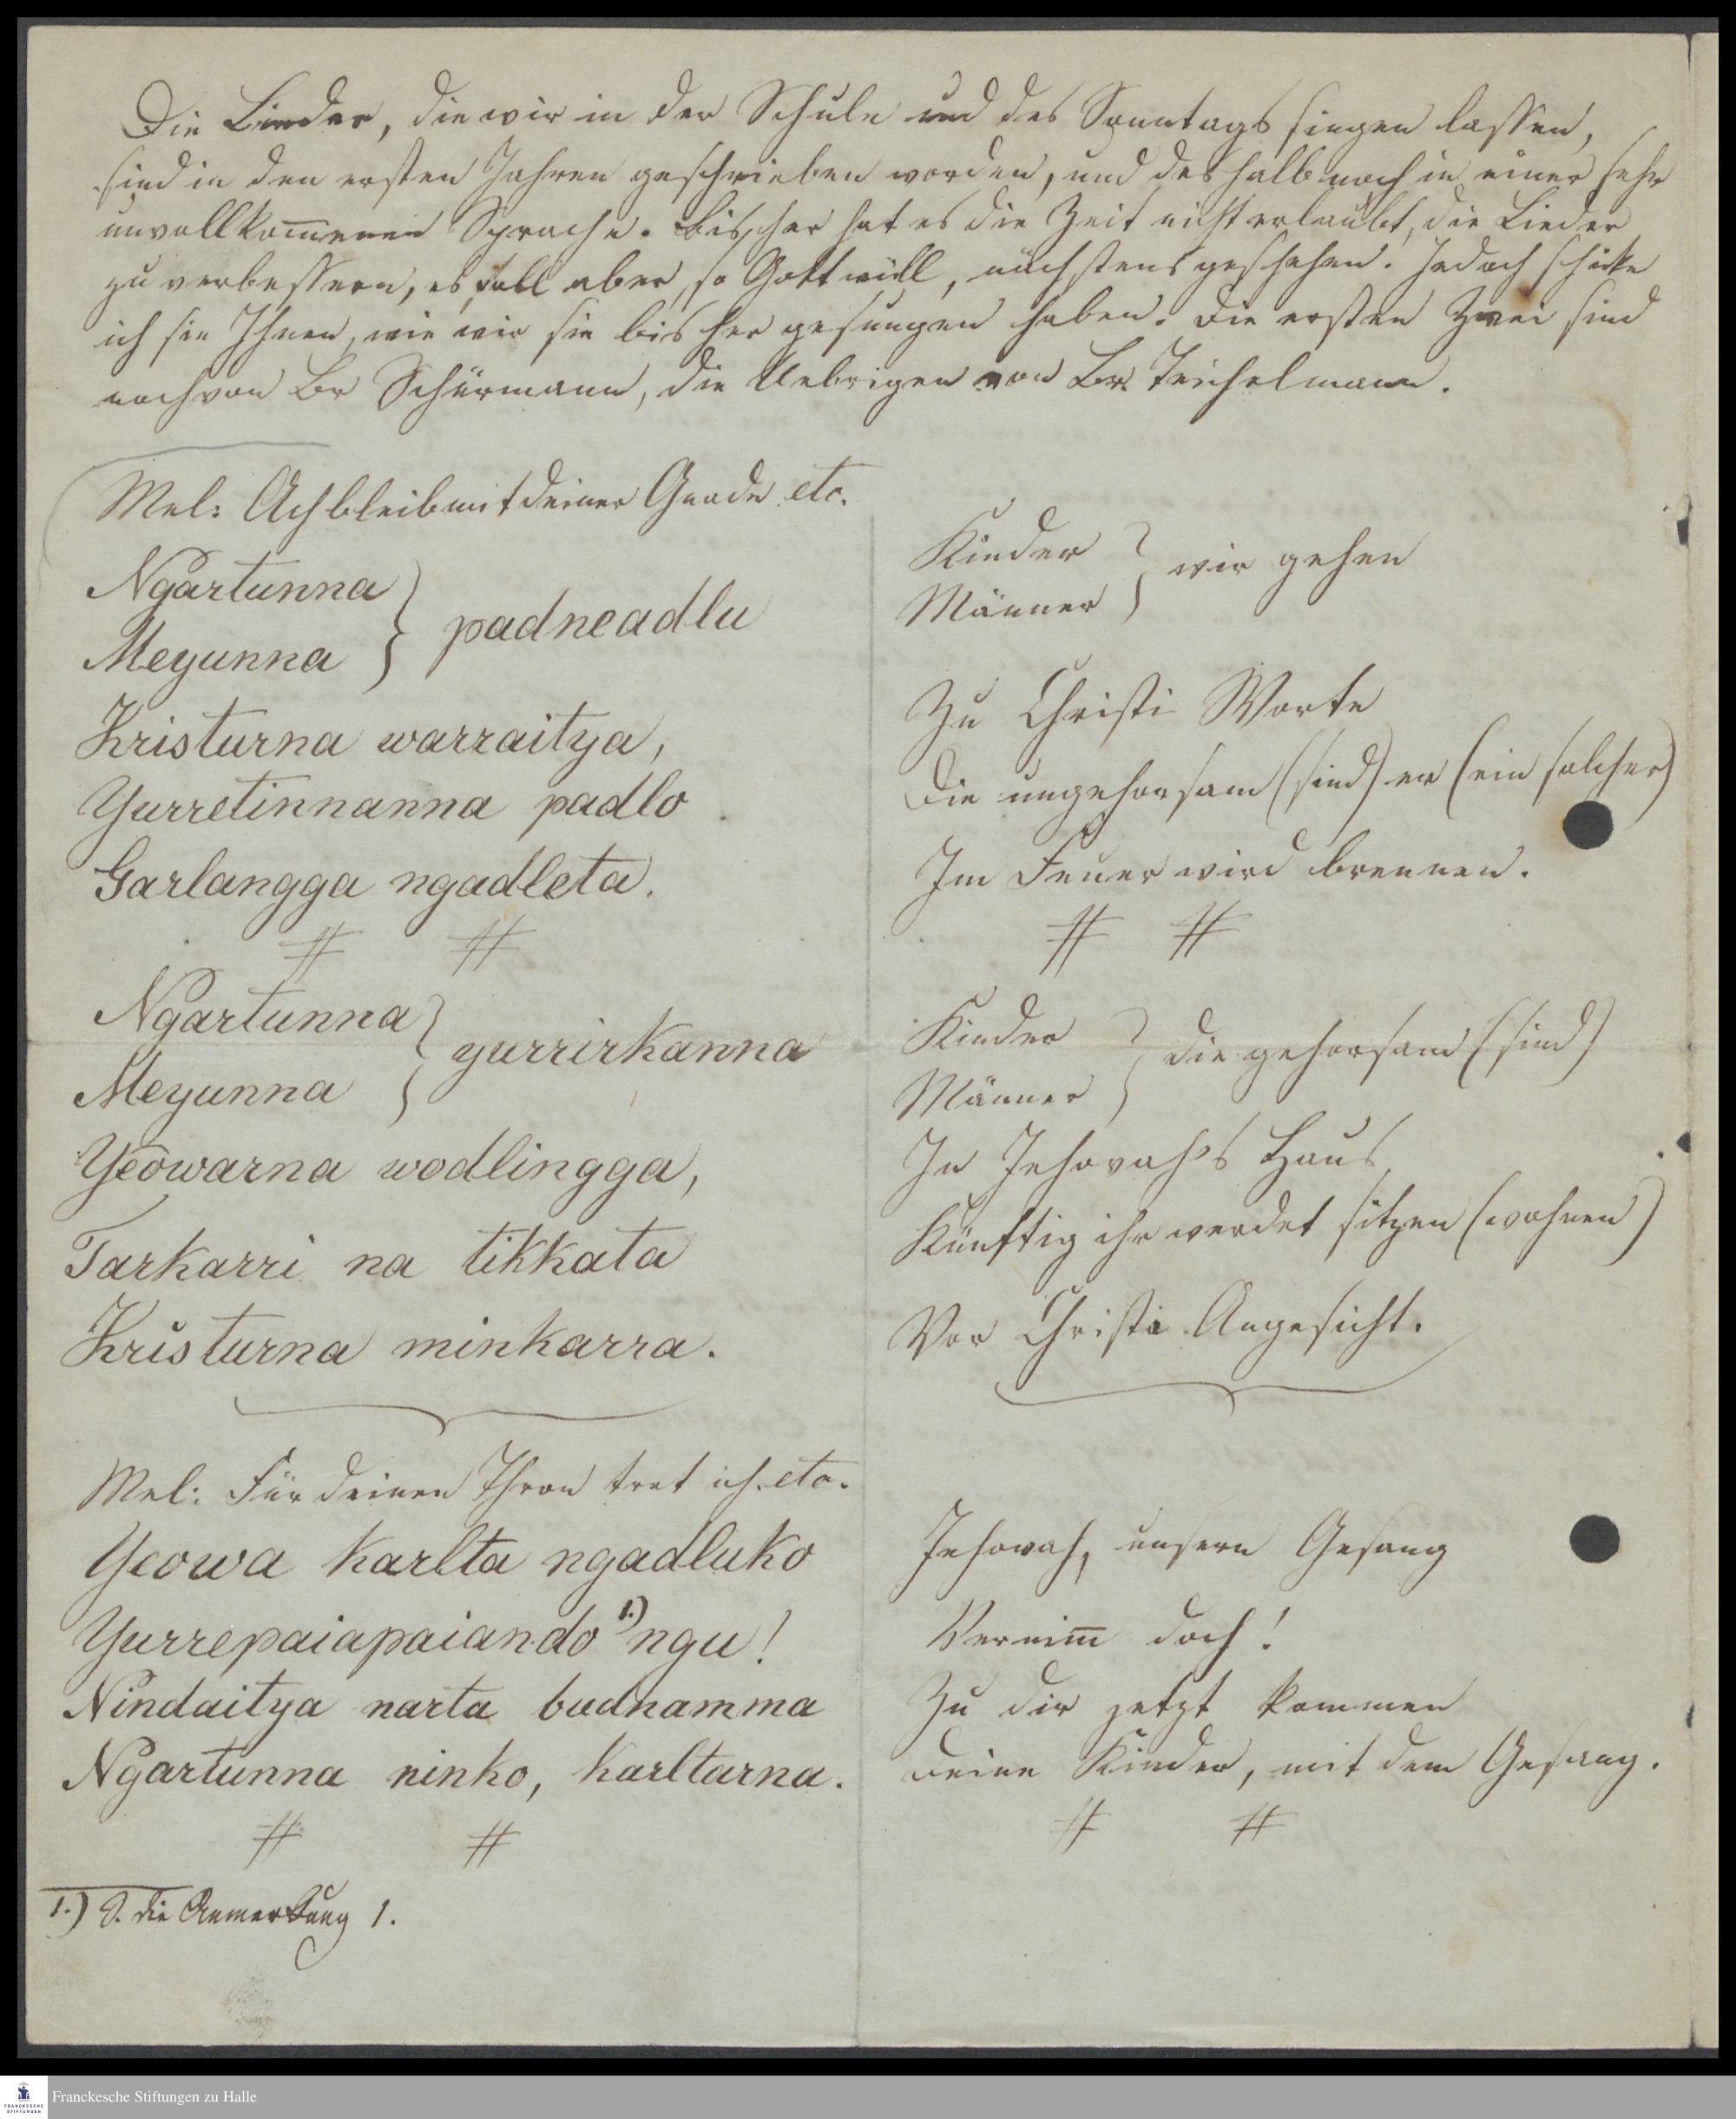 Die Lieder, die wir in der Schule und des Sonntags singen lassen,
sind in den ersten Jahren geschrieben worden, und deshalb noch in einer sehr
unvollkom̅enen Sprache. Bisher hat es die Zeit nicht erlaubt, die Lieder
zu verbessern, es soll aber, so Gott will, nächstens geschehen. Jedoch schicke
ich sie Ihnen, wie wir sie bisher gesungen haben. Die ersten Zwei sind
noch von Br Schürmann, die Uebrigen von Br. Teichelmann.
Mel: Ach bleib mit deiner Gnade etc.
Ngartunna
Meyunna } padneadlu
Kristurna warraitya,
Yurretinnanna padlo
Garlangga ngadleta.
# #
Ngartunna
Meyunna } yurrirkanna
Yeowarna wodlingga,
Tarkarri na tikkata
Kristurna minkarra.
Mel: Für deinen Thron tret ich. etc.
Yeowa karlta ngadluko
Yurrepaiapaiando 1.) ngu!
Nindaitya narta budnamma
Ngartunna ninko, karltarna.
# #
1.) S. die Anmerkung 1.
Kinder
Männer } wir gehen
Zu Christi Worte
Die ungehorsam (sind) er (ein solcher)
Im Feuer wird brennen.
# #
Kinder
Männer } die gehorsam (sind)
In Jehovah's Haus
Künftig ihr werdet sitzen (wohnen)
Vor Christi Angesicht.
Jehovah, unsern Gesang
Vernim̅ doch!
Zu dir jetzt kommen
Deine Kinder, mit dem Gesang.
# #
Franckesche Stiftungen zu Halle
FRANCKESCHE
STIFTUNGEN